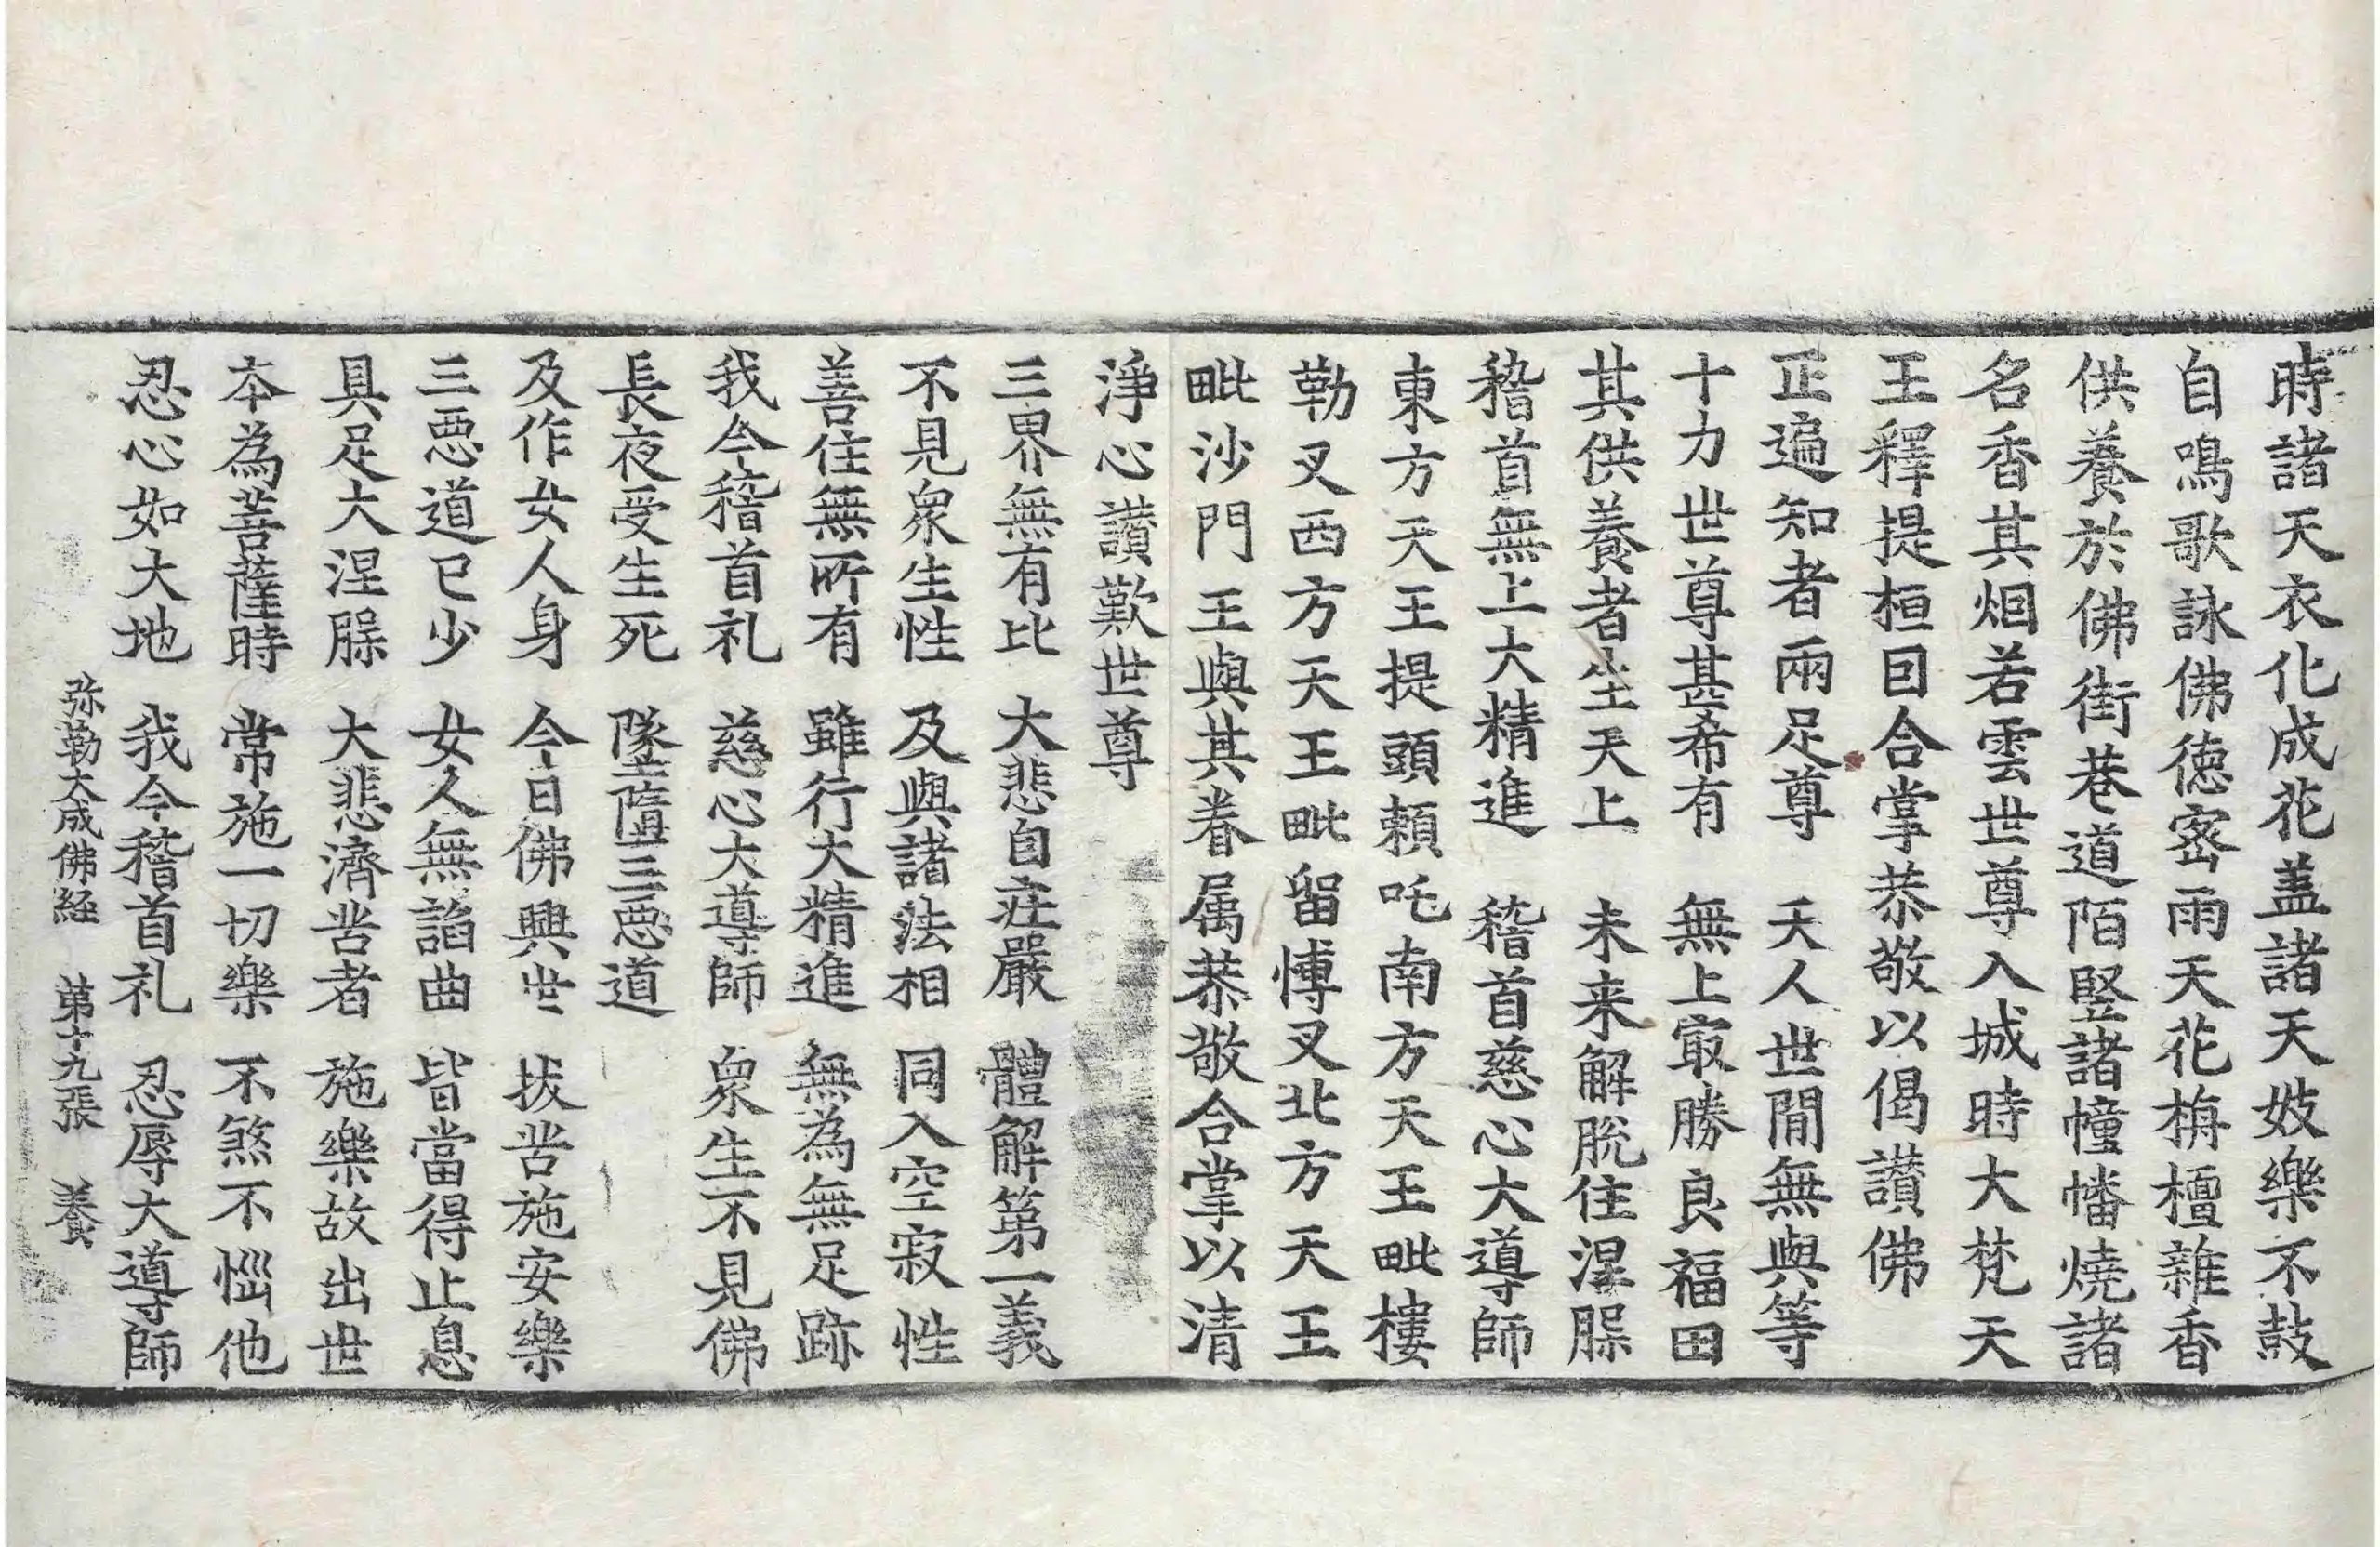 時諸天衣化成花盖諸天妓樂不鼓
自鳴歌詠佛徳密雨天花栴檀雜香
供養於佛街巷道陌竪諸幢幡燒諸
名香其烟若雲世尊入城時大梵天
王釋提桓囙合掌恭敬以偈讃佛
正遍知者兩足尊　天人世間無與等
十力世尊甚希有　無上㝡勝良福田
其供養者生天上　未来解脫住涅腂
稽首無上大精進　稽首慈心大導師
東方天王提頭頼吒南方天王毗樓
勒叉西方天王毗留愽叉北方天王
毗沙門王與其眷属恭敬合掌以清
淨心讃歎世尊
三界無有比　大悲自莊嚴　體解第一義
不見衆生性　及與諸法相　同入空寂性
善住無所有　雖行大精進　無為無足跡
我今稽首礼　慈心大導師　衆生不見佛
長夜受生死　墜墮三惡道
及作女人身　今日佛興世　拔苦施安樂
三惡道已少　女人無諂曲　皆當得止息
具足大涅腂　大悲濟苦者　施樂故出世
本為菩薩時　常施一切樂　不煞不惱他
忍心如大地　我今稽首礼　忍辱大導師
弥勒大成佛経　第十九張　養